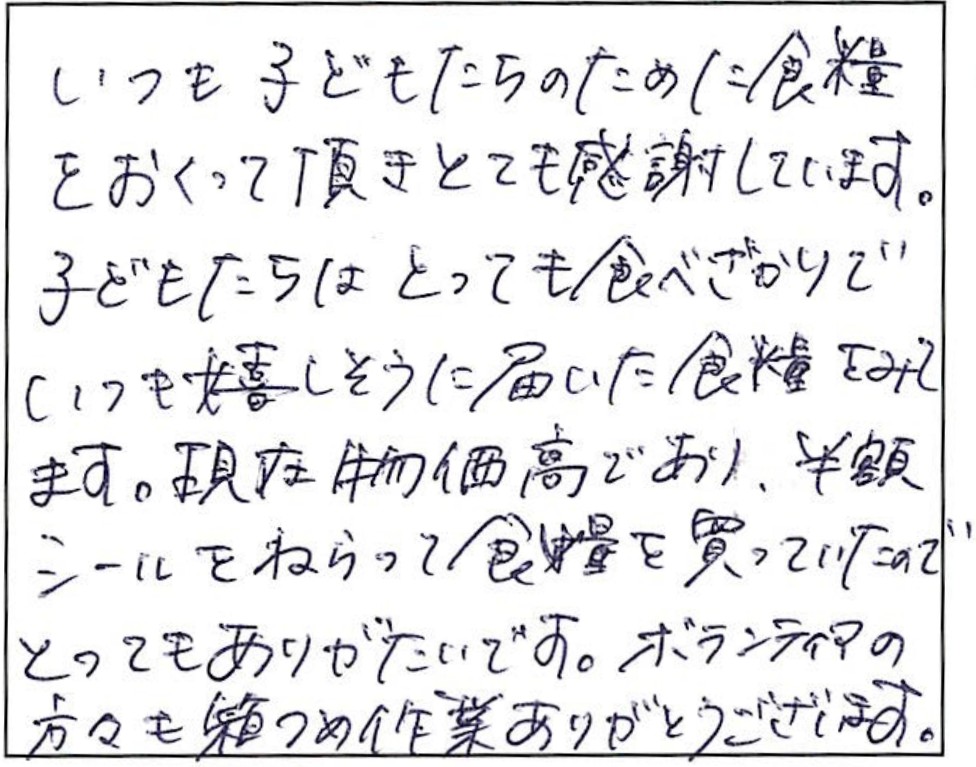 いつも子どもたちのために食糧
をおくって頂きとても感謝しています。
子どもたちはとっても食べざかりで
いつも嬉しそうに届いた食糧をみて
ます。現在物価高であり、半額
シールをねらって食糧を買っていたので
とってもありがたいです。ボランティアの
方々も箱つめ作業ありがとうございます。